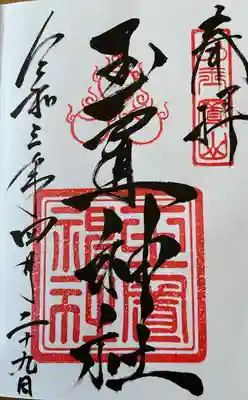 奉拝
玉置神社
令和三年四月二十九日
玉置
神社